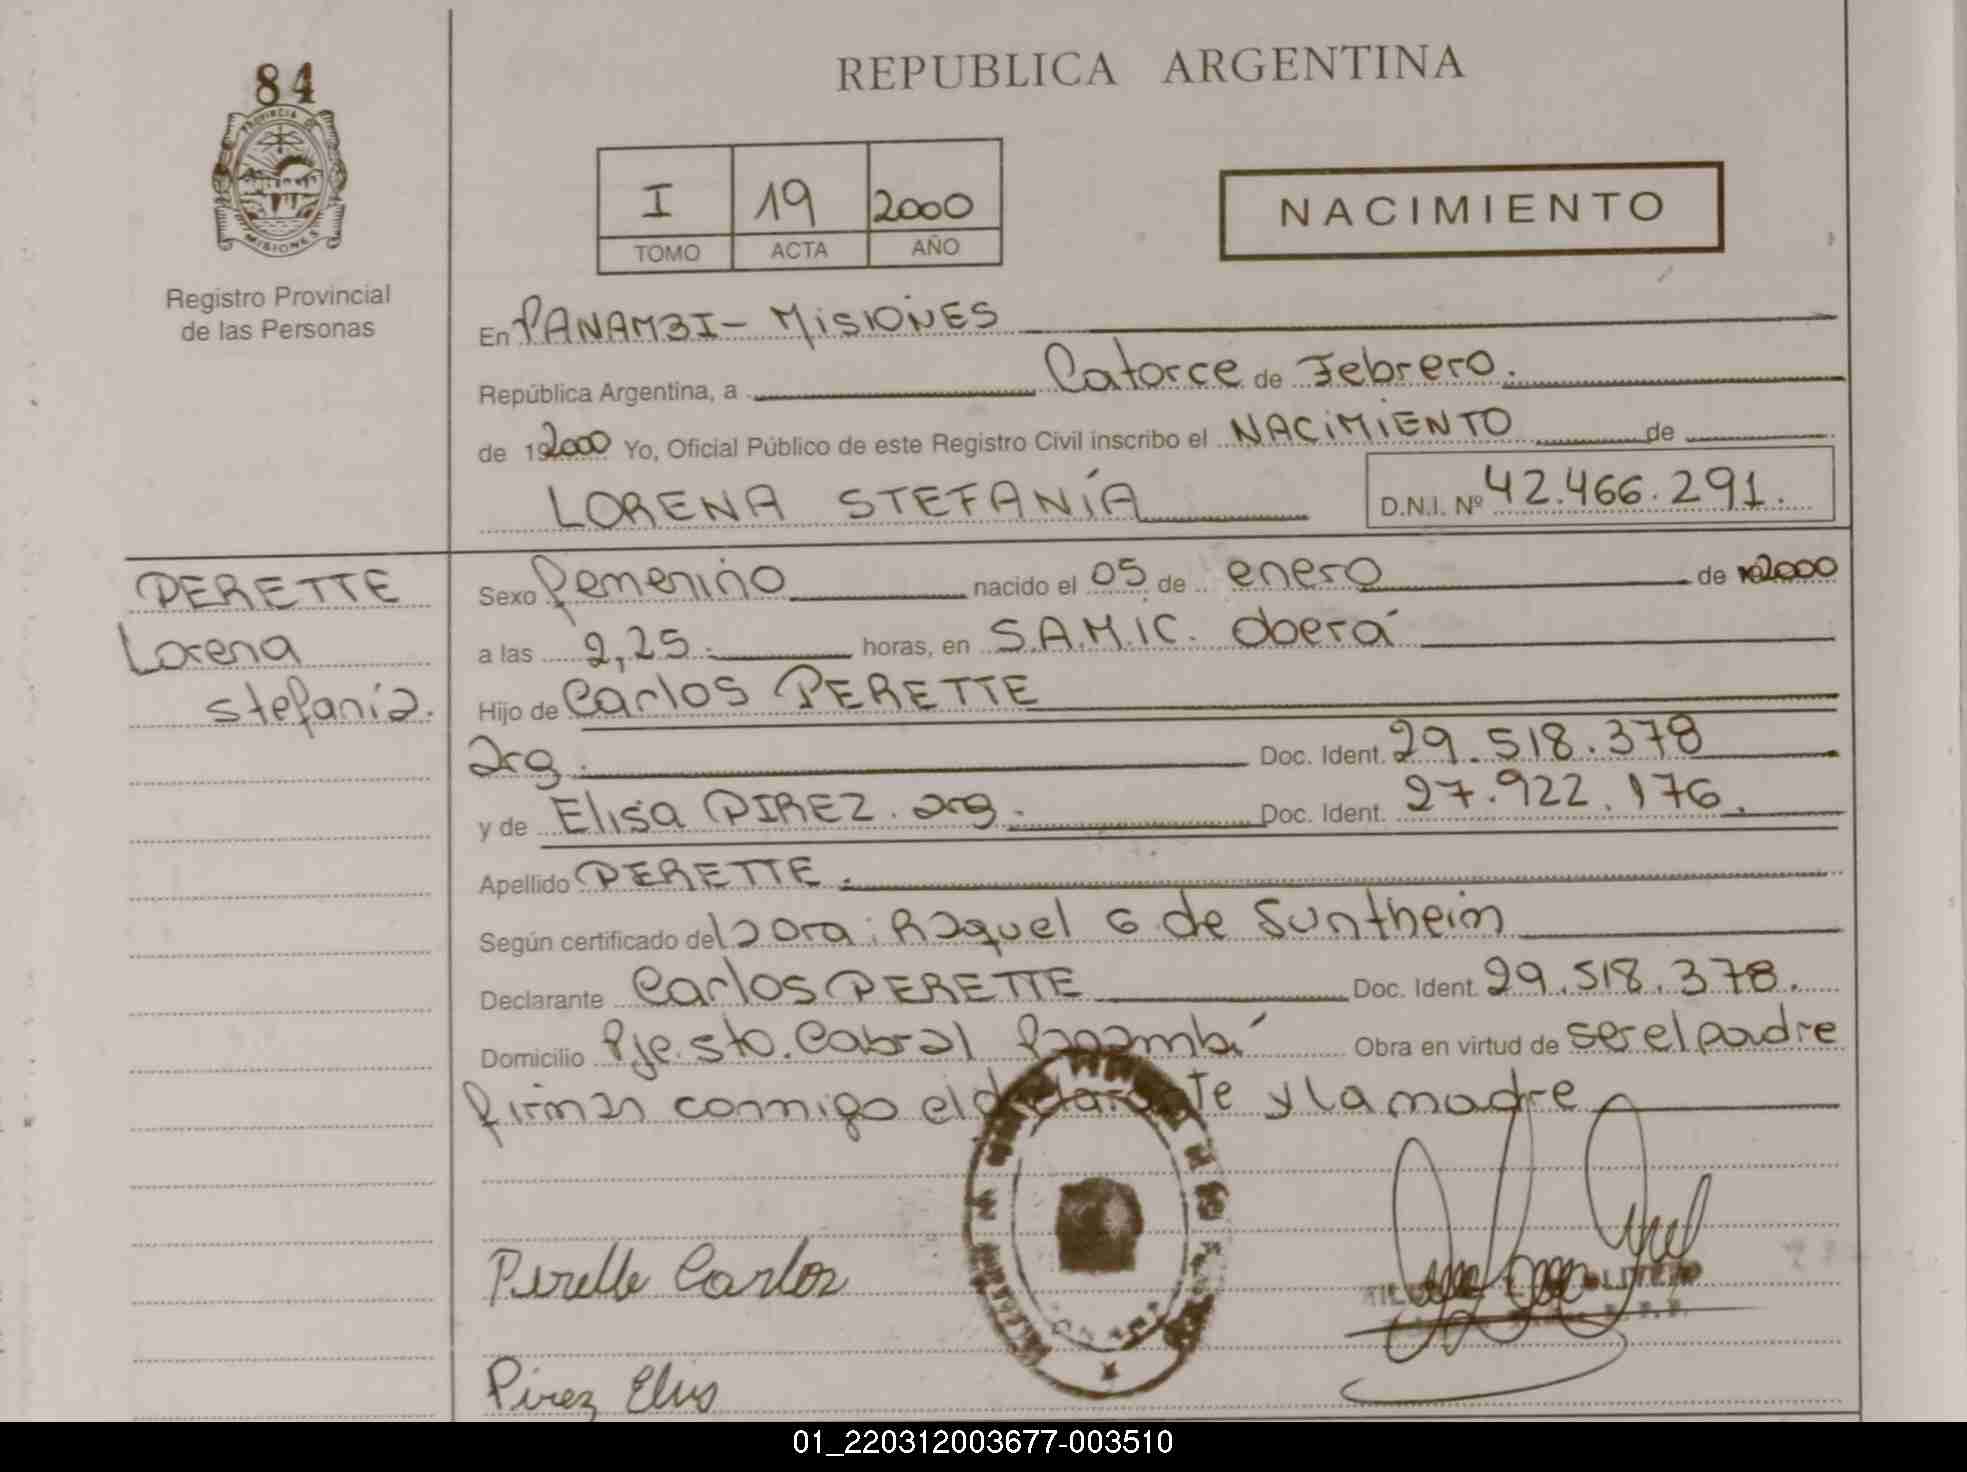 84
PROVINCIA DE
MISIONES
Registro Provincial
de las Personas
REPUBLICA ARGENTINA
I 19 2000
TOMO ACTA AÑO
NACIMIENTO
En PANAMBI - MISIONES
República Argentina, a Catorce de Febrero.
de 192000 Yo, Oficial Público de este Registro Civil inscribo el NACIMIENTO de
LORENA STEFANÍA D.N.I. Nº 42.466.291.
PERETTE
Lorena
Stefanía.
Sexo femenino nacido el 05 de enero de 2000
a las 2,25 horas, en S.A.M.IC. Oberá
Hijo de Carlos PERETTE
arg. Doc. Ident. 29.518.378
y de Elisa PIREZ. arg. Doc. Ident. 27.922.176.
Apellido PERETTE.
Según certificado de la Dra: Raquel G de Suntheim
Declarante Carlos PERETTE Doc. Ident. 29.518.378.
Domicilio Pje. sto. Cabral Panambí Obra en virtud de ser el padre
firman conmigo el declarante y la madre
Perette Carlos
Pirez Elisa
01_220312003677-003510